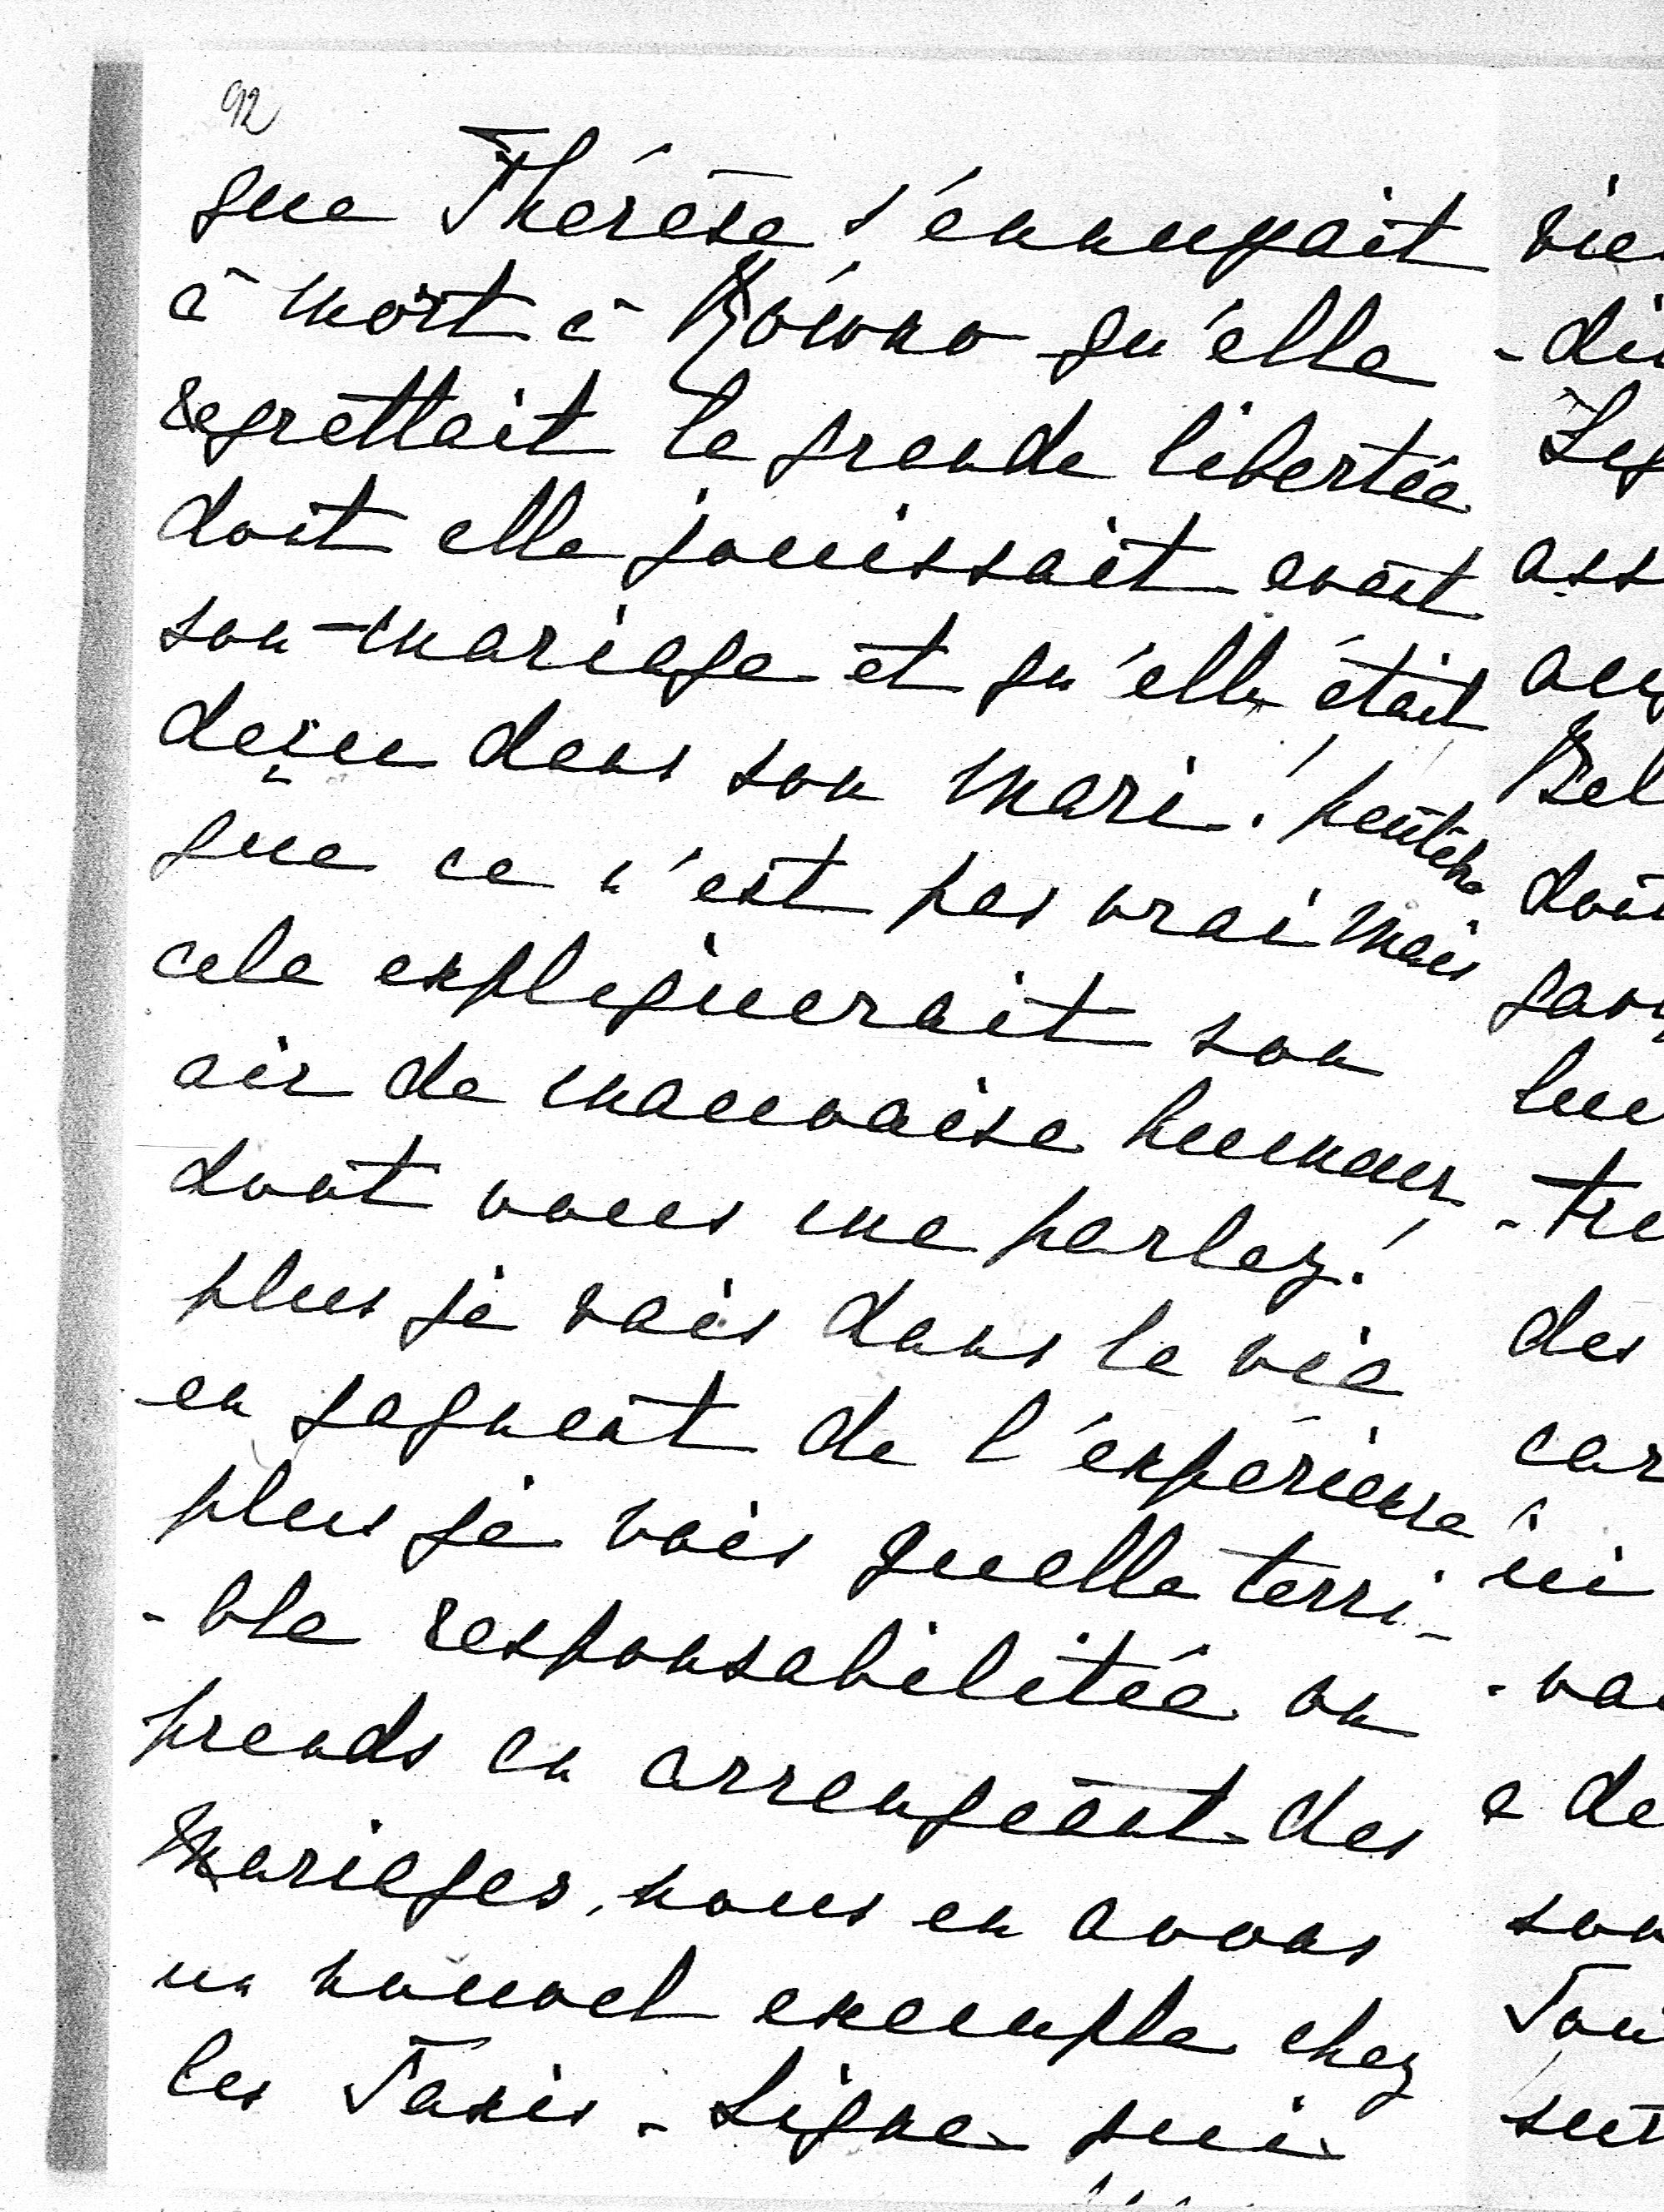 92
que Thérèse s'ennuyait
à mort à Równo qu'elle
regrettait la grande libertée
dont elle jouissait avant
son mariage et qu'elle était
deçue dans son mari! peutêtre
que ce n'est pas vrai mais
cela expliquerait son
air de mauvaise humeur
dont vous me parlez!
plus je vais dans la vie
en gagnant de l'expérience
plus je vois quelle terri-
-ble responsabilitée on
prends en arrangeant des
mariages, nous en avons
un nouvel exemple chez
les Taxis-Ligne qui
vie
-di
ass
Bel
des
car
ni
-va
a de